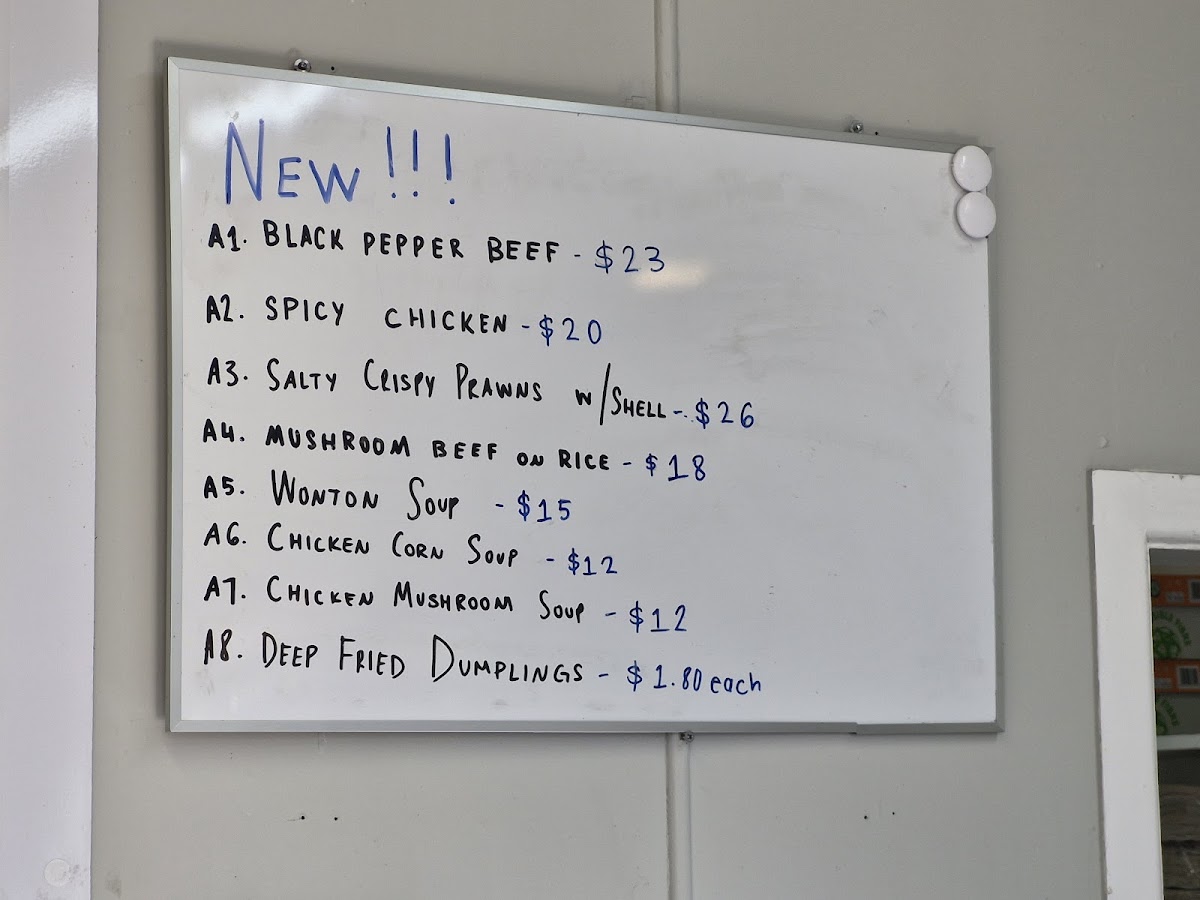 NEW!!!
A1. BLACK PEPPER BEEF - $23
A2. SPICY CHICKEN - $20
A3. SALTY CRISPY PRAWNS W/SHELL - $26
A4. MUSHROOM BEEF ON RICE - $18
A5. WONTON SOUP - $15
A6. CHICKEN CORN SOUP - $12
A7. CHICKEN MUSHROOM SOUP - $12
A8. DEEP FRIED DUMPLINGS - $1.80 each